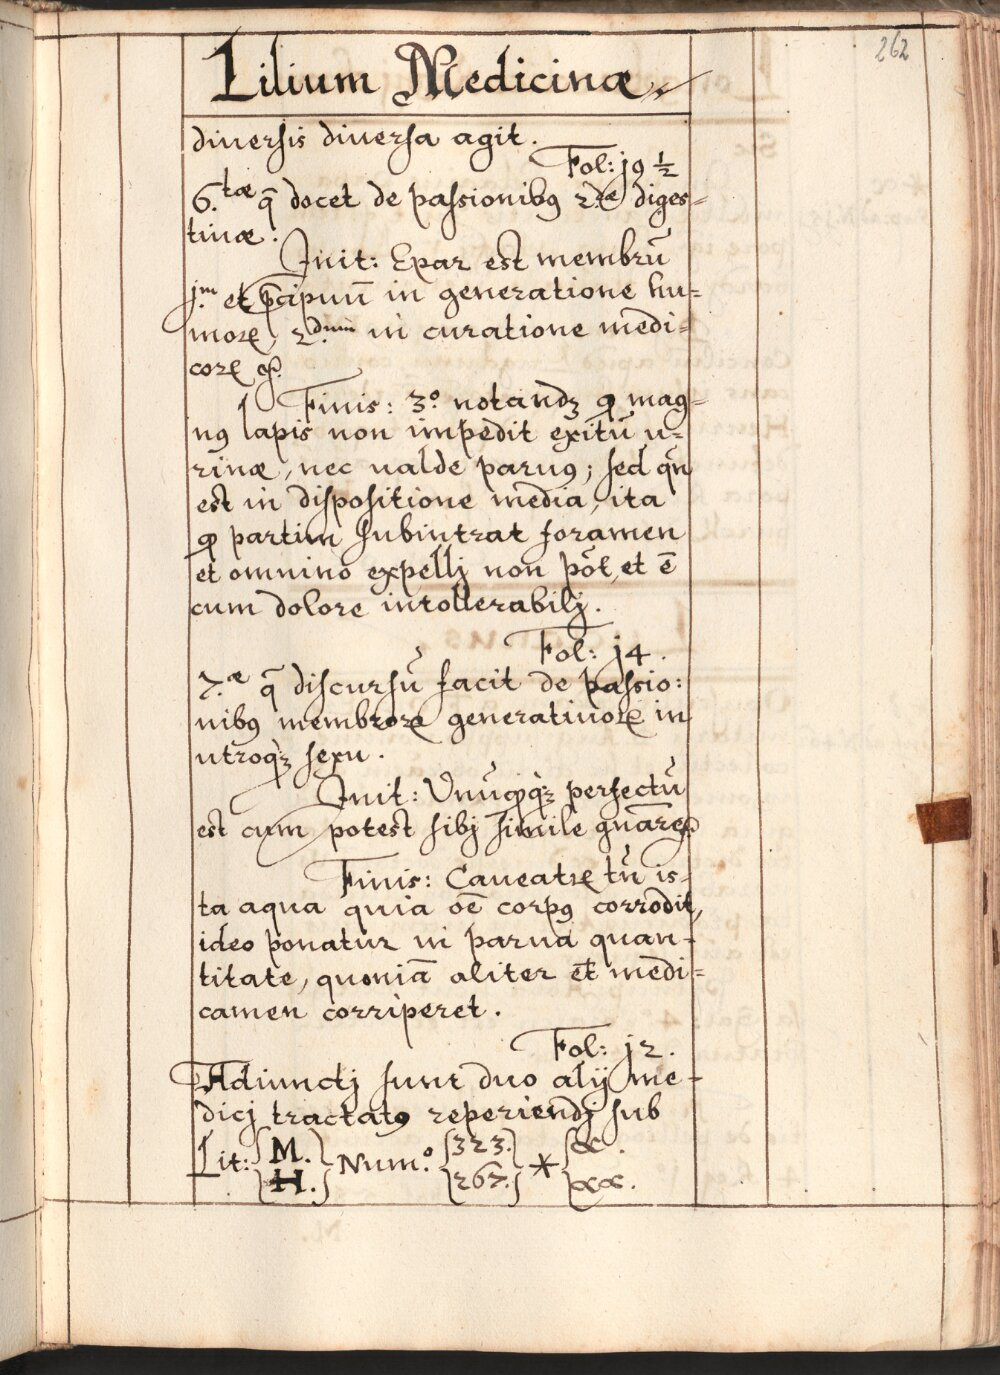 262
Lilium Medicinæ
diuersis diuersa agit.
Fol: j9 ½
6.tæ q̄ docet de passionibꝰ 2.dæ diges=
tiuæ.
Init: Epar est membrū
j.m et p̄cipuū in generatione hu=
moꝝ, 2.dum in curatione medi=
coꝝ
Finis: 3.º notandꝫ ꝙ mag=
nꝰ lapis non impedit exitū u=
rinæ, nec ualde paruꝰ; sed qn̄
est in dispositione media, ita
ꝙ partim subintrat foramen
et omnino expellj non pōt, et ē
cum dolore intollerabilj.
Fol: j4.
7.æ q̄ discursū facit de passio:
nibꝰ membroꝝ generatiuoꝝ in
utroqꝫ sexu.
Init: Vnūqꝫ perfectū
est cum potest sibj simile gn̄are
Finis: Caueatꝛ tn̄ is=
ta aqua quia oē corpꝰ corrodit,
ideo ponatur in parua quan=
titate, quoniā aliter et̄ medi=
camen corriperet.
Fol: j2.
Adiunctj sunt duo alij me=
dicj tractatꝰ reperiendj sub
Lit: {M.} Num.º {323.} * {α.}
{H.} {267.} {αα.}